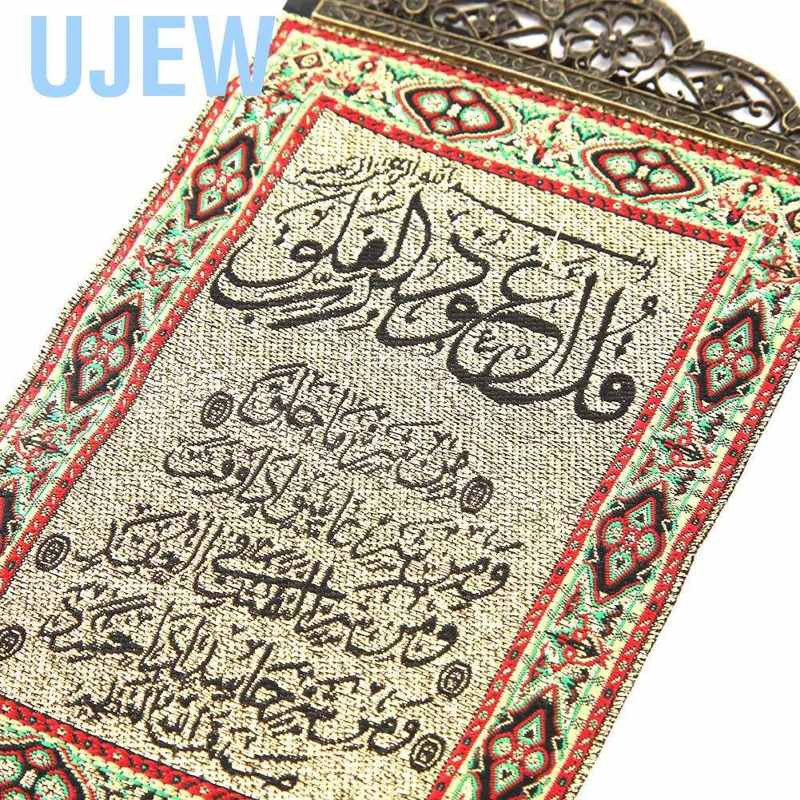 UJEW
بسم الله الرحمن الرحيم
قل اعوذ برب الفلق
من شر ما خلق
ومن شر غاسق اذا وقب
ومن شر النفثت في العقد
ومن شر حاسد اذا حسد
صدق الله العظيم